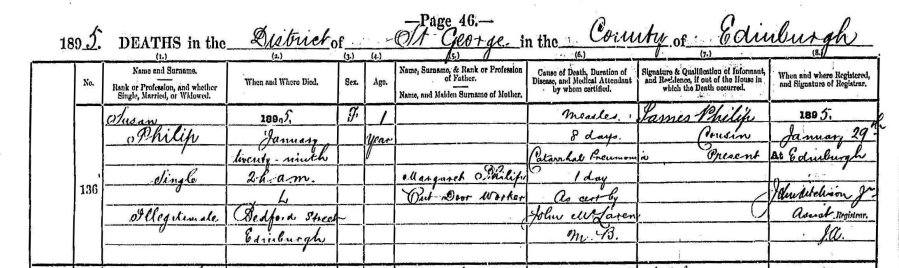 —Page 46.—
1895. DEATHS in the District of St George in the County of Edinburgh
(1.) (2.) (3.) (4.) (5.) (6.) (7.) (8.)
No.
Name and Surname.
Rank or Profession, and whether
Single, Married, or Widowed.
When and Where Died.
Sex.
Age.
Name, Surname, & Rank or Profession
of Father.
Name, and Maiden Surname of Mother.
Cause of Death, Duration of
Disease, and Medical Attendant
by whom certified.
Signature & Qualification of Informant,
and Residence, if out of the House in
which the Death occurred.
When and where Registered,
and Signature of Registrar.
136
Susan
Philip
Single
Illegitimate
1895.
January
twenty-ninth
2 h. a.m.
Bedford Street
Edinburgh
F
1
Year
Margaret Philip
Out Door Worker
Measles.
8 days.
Catarrhal Pneumonia
1 day
As cert by
John McLaren
M.B.
James Philip
Cousin
Present
1895.
January 29th
At Edinburgh
Jr
Assist. Registrar.
J.A.